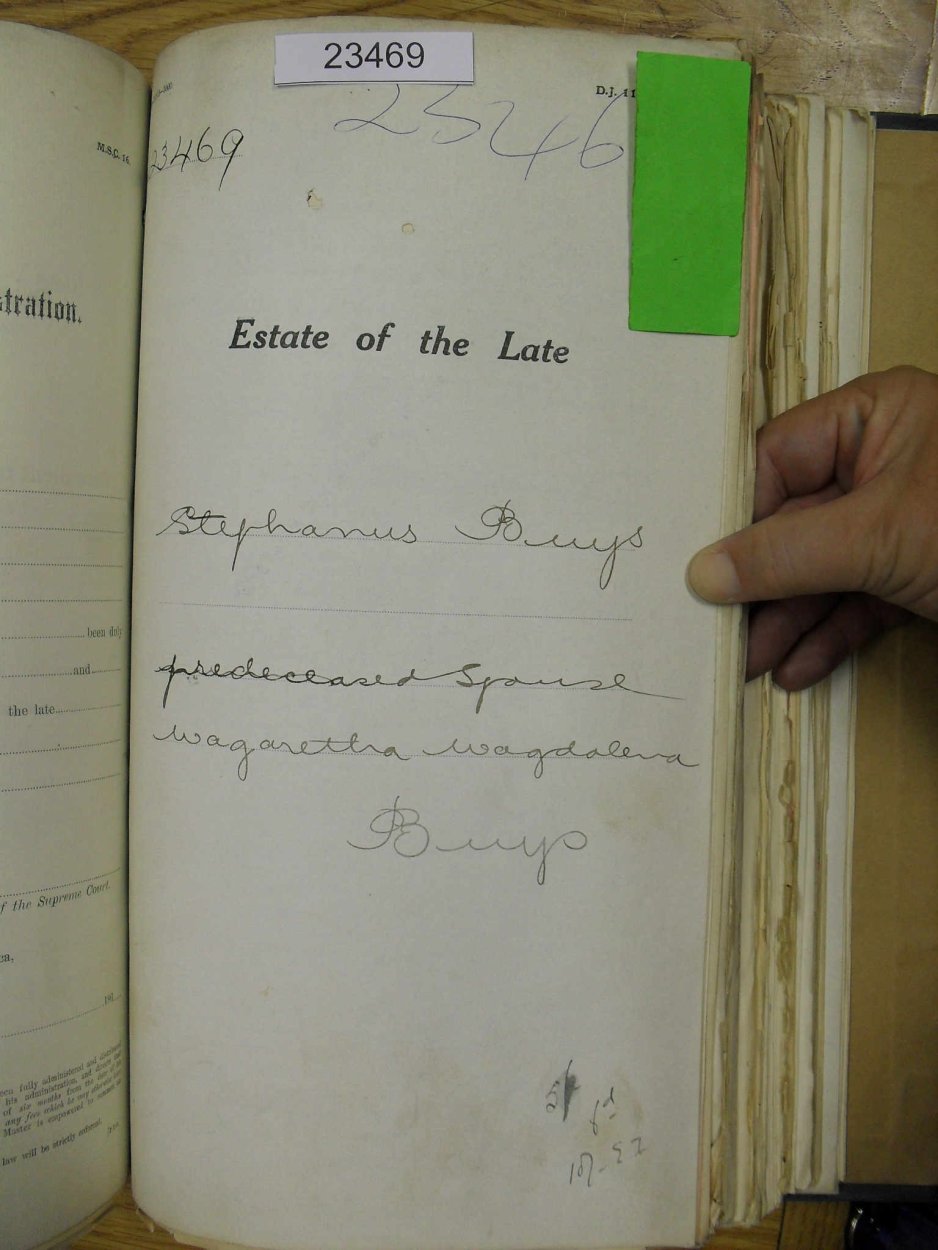 23469
D.J. 11
2346
23469
Estate of the Late
Stephanus Buys
predeceased Spouse
Magaretha Magdalena
Buys
M.S.C. 16.
stration.
been duly
and
the late
f the Supreme Court.
ca,
191
een fully administered and distributed
his administration, and directs that
of six months from the date of his
any fees which he may otherwise have
Master is empowered to summon an
law will be strictly enforced.